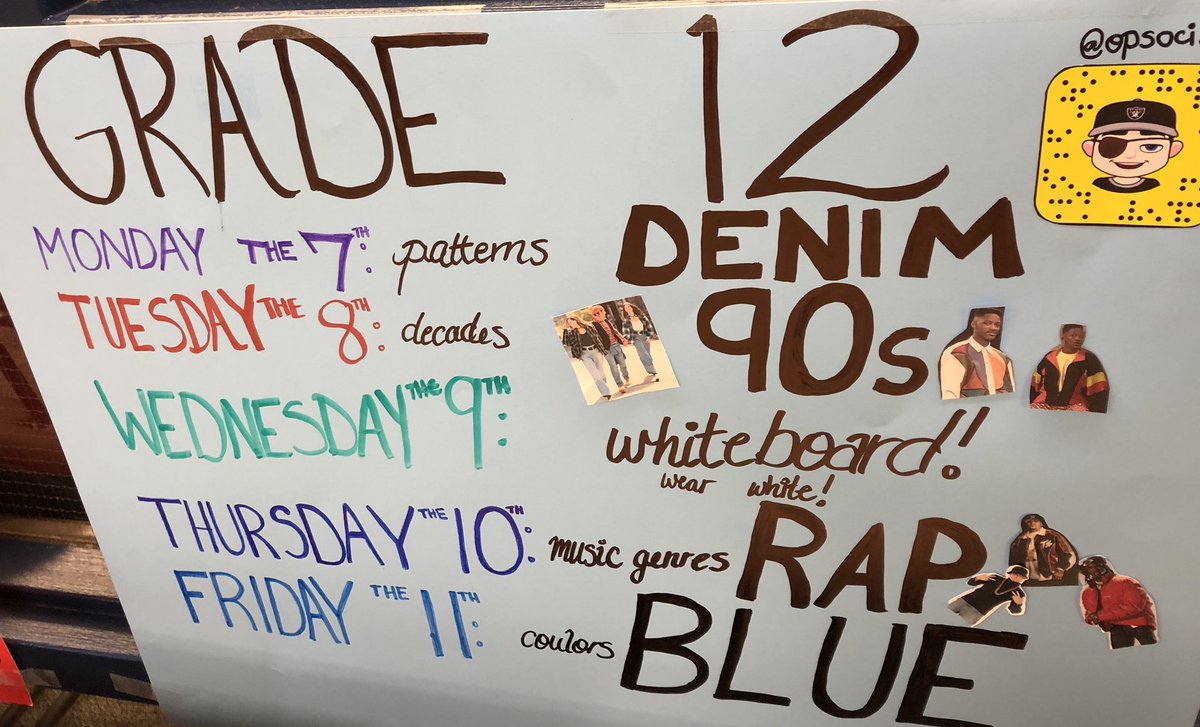 GRADE 12
@opsoci
MONDAY THE 7TH: patterns DENIM
TUESDAY THE 8TH: decades 90s
WEDNESDAY THE 9TH: whiteboard!
wear white!
THURSDAY THE 10TH: music genres RAP
FRIDAY THE 11TH: coulors BLUE